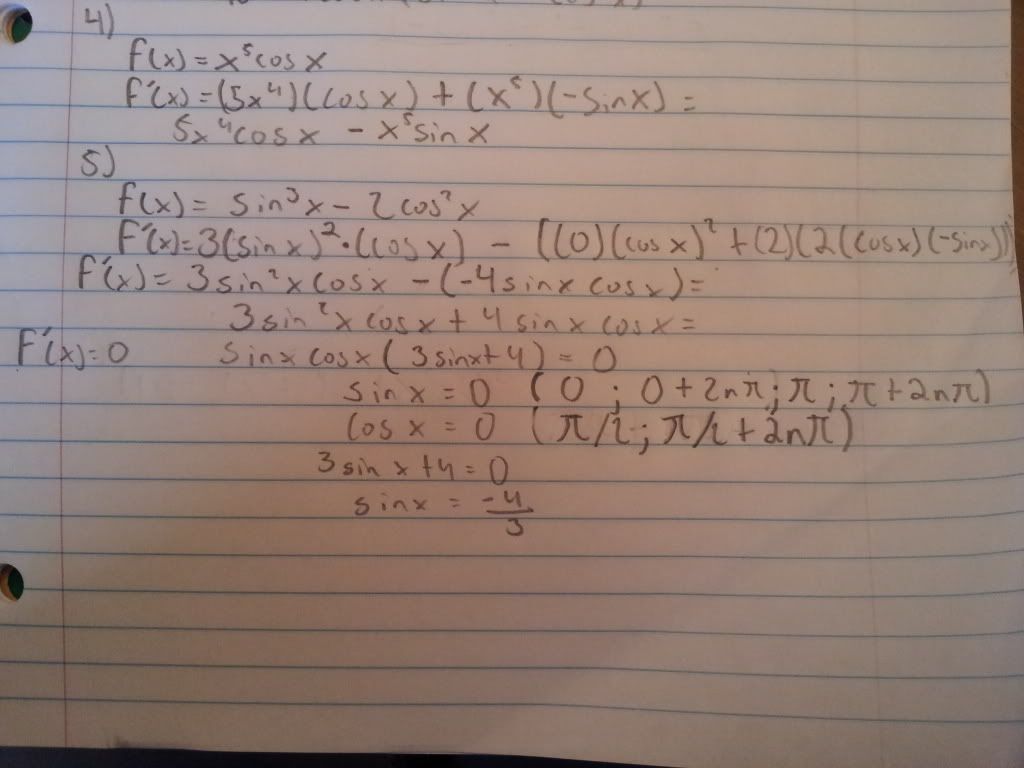 4)
f(x) = x⁵cos x
f'(x) = (5x⁴)(cos x) + (x⁵)(-sin x) =
5x⁴cos x - x⁵sin x
5)
f(x) = sin³x - 2cos²x
f'(x) = 3(sin x)²·(cos x) - [(0)(cos x)² + (2)(2(cos x)(-sin x))]
f'(x) = 3sin²x cos x - (-4sin x cos x) =
3sin²x cos x + 4 sin x cos x =
f'(x) = 0 sin x cos x (3sin x + 4) = 0
sin x = 0 (0 ; 0 + 2nπ; π ; π + 2nπ)
cos x = 0 (π/2 ; π/2 + 2nπ)
3 sin x + 4 = 0
sin x = -4/3